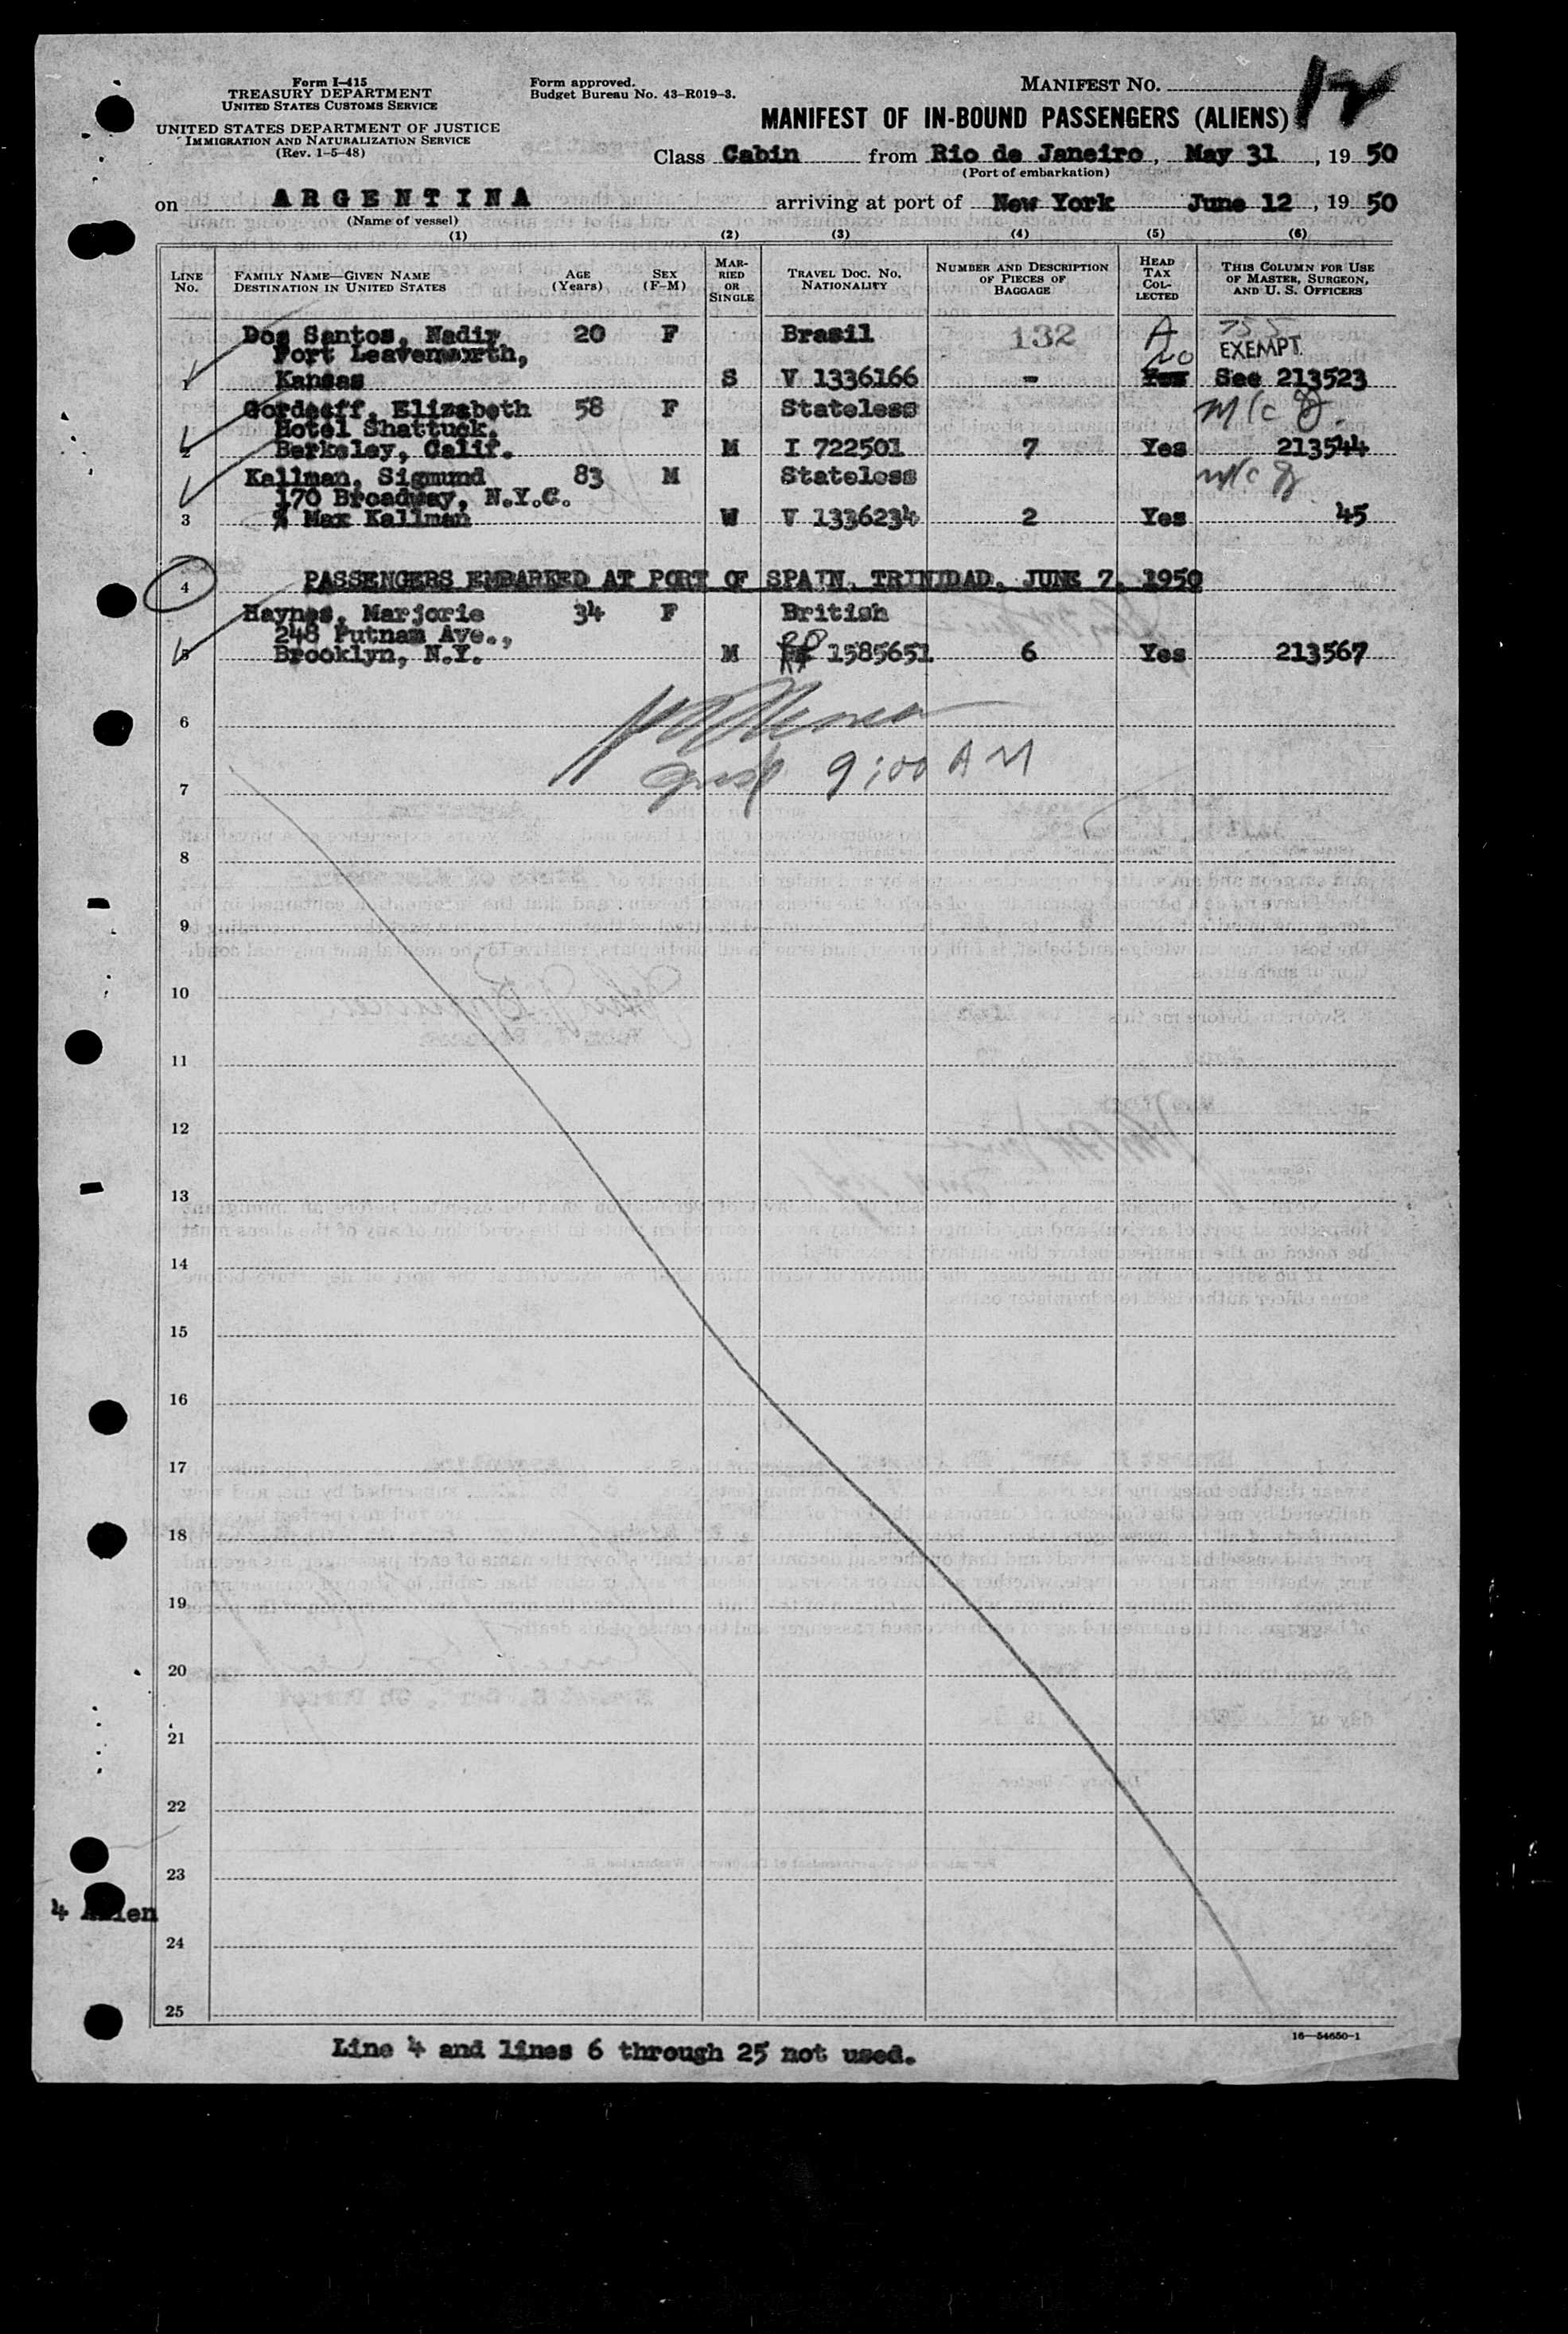 Form I-415
TREASURY DEPARTMENT
UNITED STATES CUSTOMS SERVICE
UNITED STATES DEPARTMENT OF JUSTICE
IMMIGRATION AND NATURALIZATION SERVICE
(Rev. 1-5-48)
Form approved.
Budget Bureau No. 43-R019-3.
MANIFEST NO. 12
MANIFEST OF IN-BOUND PASSENGERS (ALIENS)
Class Cabin from Rio de Janeiro, May 31, 1950
(Port of embarkation)
on ARGENTINA arriving at port of New York June 12, 1950
(Name of vessel)
(1) (2) (3) (4) (5) (6)
LINE No. FAMILY NAME—GIVEN NAME DESTINATION IN UNITED STATES AGE (Years) SEX (F-M) MARRIED OR SINGLE TRAVEL DOC. NO. NATIONALITY NUMBER AND DESCRIPTION OF PIECES OF BAGGAGE HEAD TAX COLLECTED THIS COLUMN FOR USE OF MASTER, SURGEON, AND U. S. OFFICERS
Dos Santos, Nadir 20 F Brasil 132 A
Fort Leavenworth, No EXEMPT.
1 Kansas S V 1336166 - Yes See 213523
Gordeeff, Elizabeth 58 F Stateless
Hotel Shattuck,
2 Berkeley, Calif. M I 722501 7 Yes 213544
Kallman, Sigmund 83 M Stateless
170 Broadway, N.Y.C.
3 % Max Kallman W V 1336234 2 Yes 45
4 PASSENGERS EMBARKED AT PORT OF SPAIN, TRINIDAD, JUNE 7, 1950
Haynes, Marjorie 34 F British
248 Putnam Ave.,
5 Brooklyn, N.Y. M RP 1585651 6 Yes 213567
6
7 9:00 AM
8
9
10
11
12
13
14
15
16
17
18
19
20
21
22
23
4 Alien
24
25
16—54650-1
Line 4 and lines 6 through 25 not used.